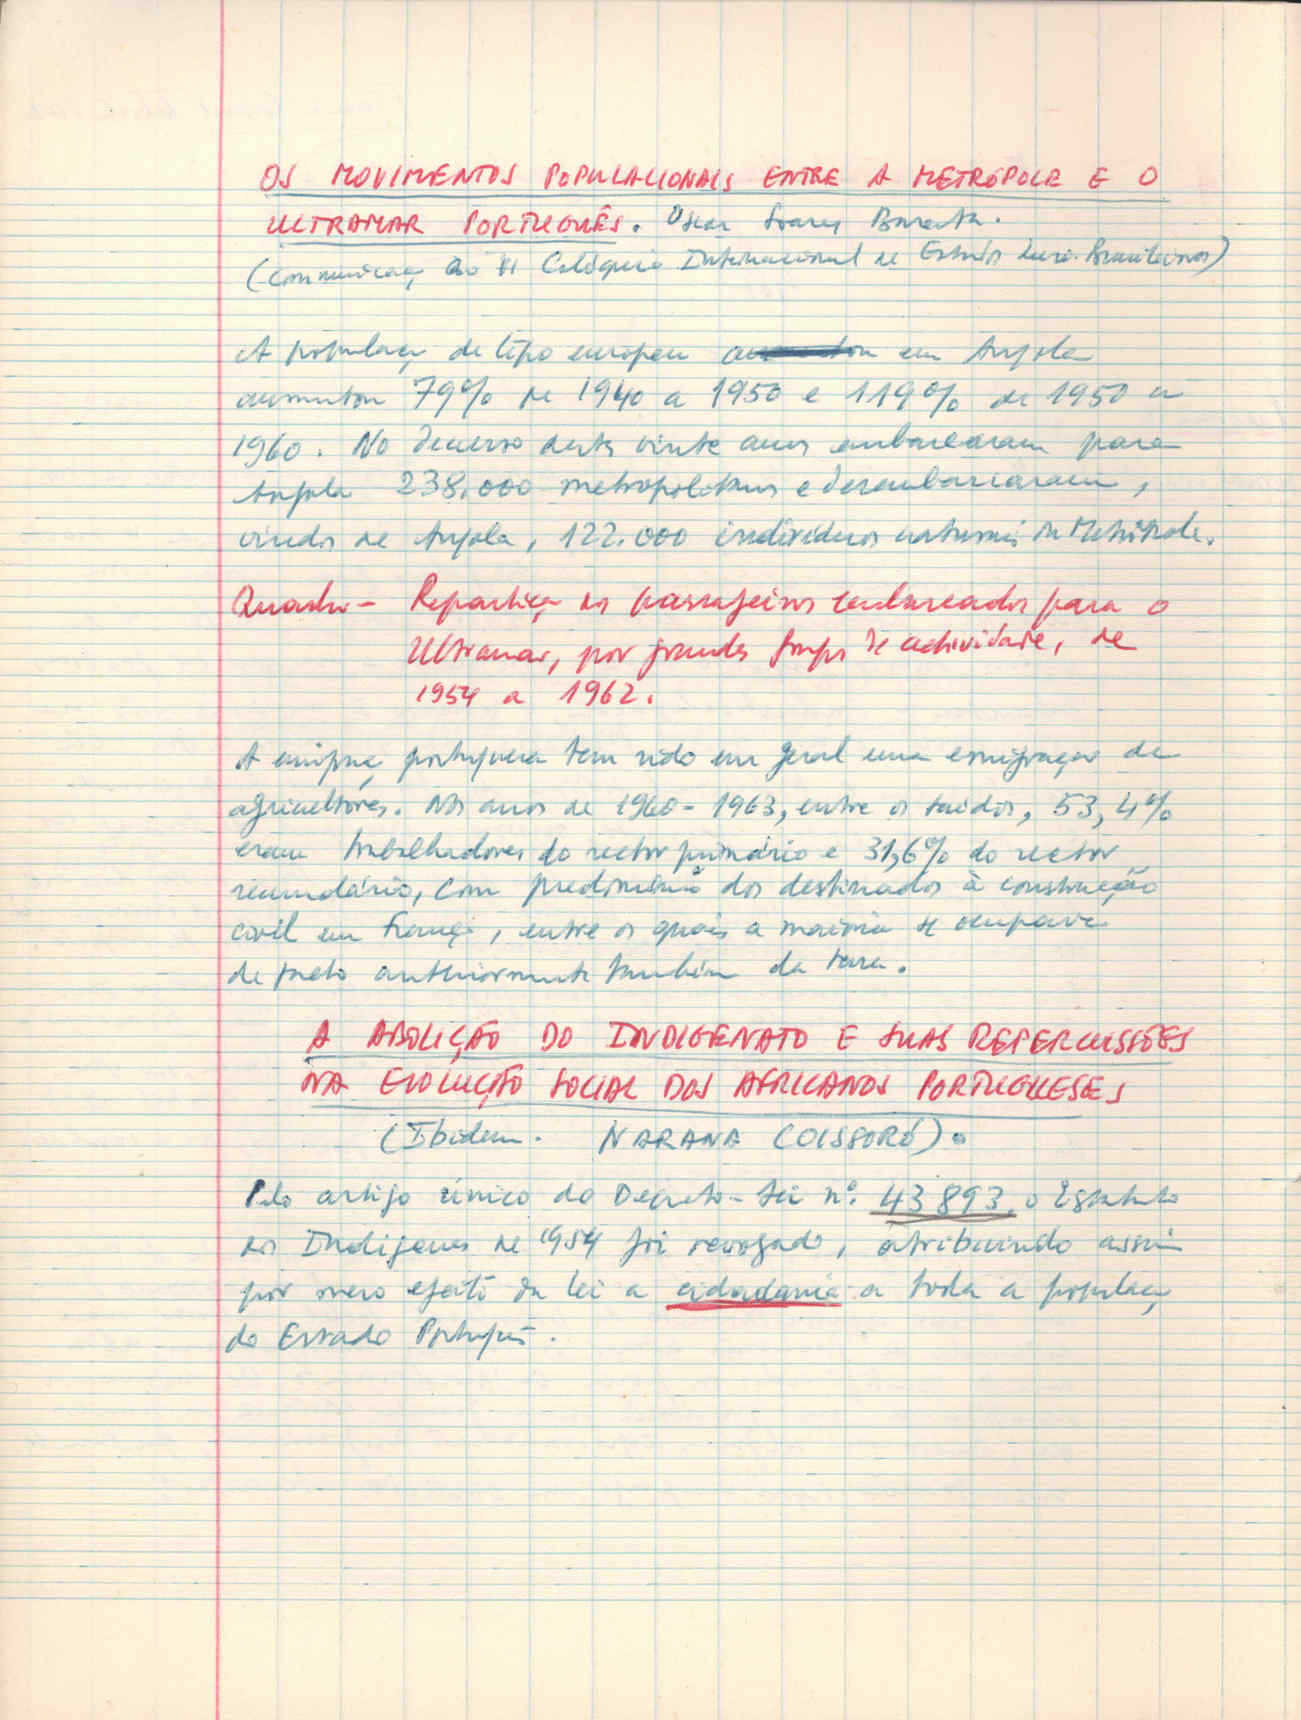 OS MOVIMENTOS POPULACIONAIS ENTRE A METRÓPOLE E O
ULTRAMAR PORTUGUÊS. Óscar Soares Barata.
(Comunicaç ao VI Colóquio Internacional de Estudos Luso-Brasileiros)
A populaç de tipo europeu em Angola
aumentou 79% de 1940 a 1950 e 119% de 1950 a
1960. No decurso destes vinte anos embarcaram para
Angola 238.000 metropolitanos e desembarcaram,
vindos de Angola, 122.000 indivíduos naturais da Metrópole.
Quadro - Repartiç dos passageiros embarcados para o
Ultramar, por grandes grupos de actividade, de
1954 a 1962.
A emigraç portuguesa tem sido em geral uma emigração de
agricultores. Nos anos de 1960-1963, entre os saídos, 53,4%
eram trabalhadores do sector primário e 31,6% do sector
secundário, com predomínio dos destinados à construção
civil em França, entre os quais a maioria se ocupava
de facto anteriormente também da terra.
A ABOLIÇÃO DO INDIGENATO E SUAS REPERCUSSÕES
NA EVOLUÇÃO SOCIAL DOS AFRICANOS PORTUGUESES
(Ibidem. NARANA COISSORÓ).
Pelo artigo único do Decreto-Lei nº. 43 893, o Estatuto
dos Indígenas de 1954 foi revogado, atribuindo assim
por mero efeito da lei a cidadania a toda a populaç
do Estado Português.